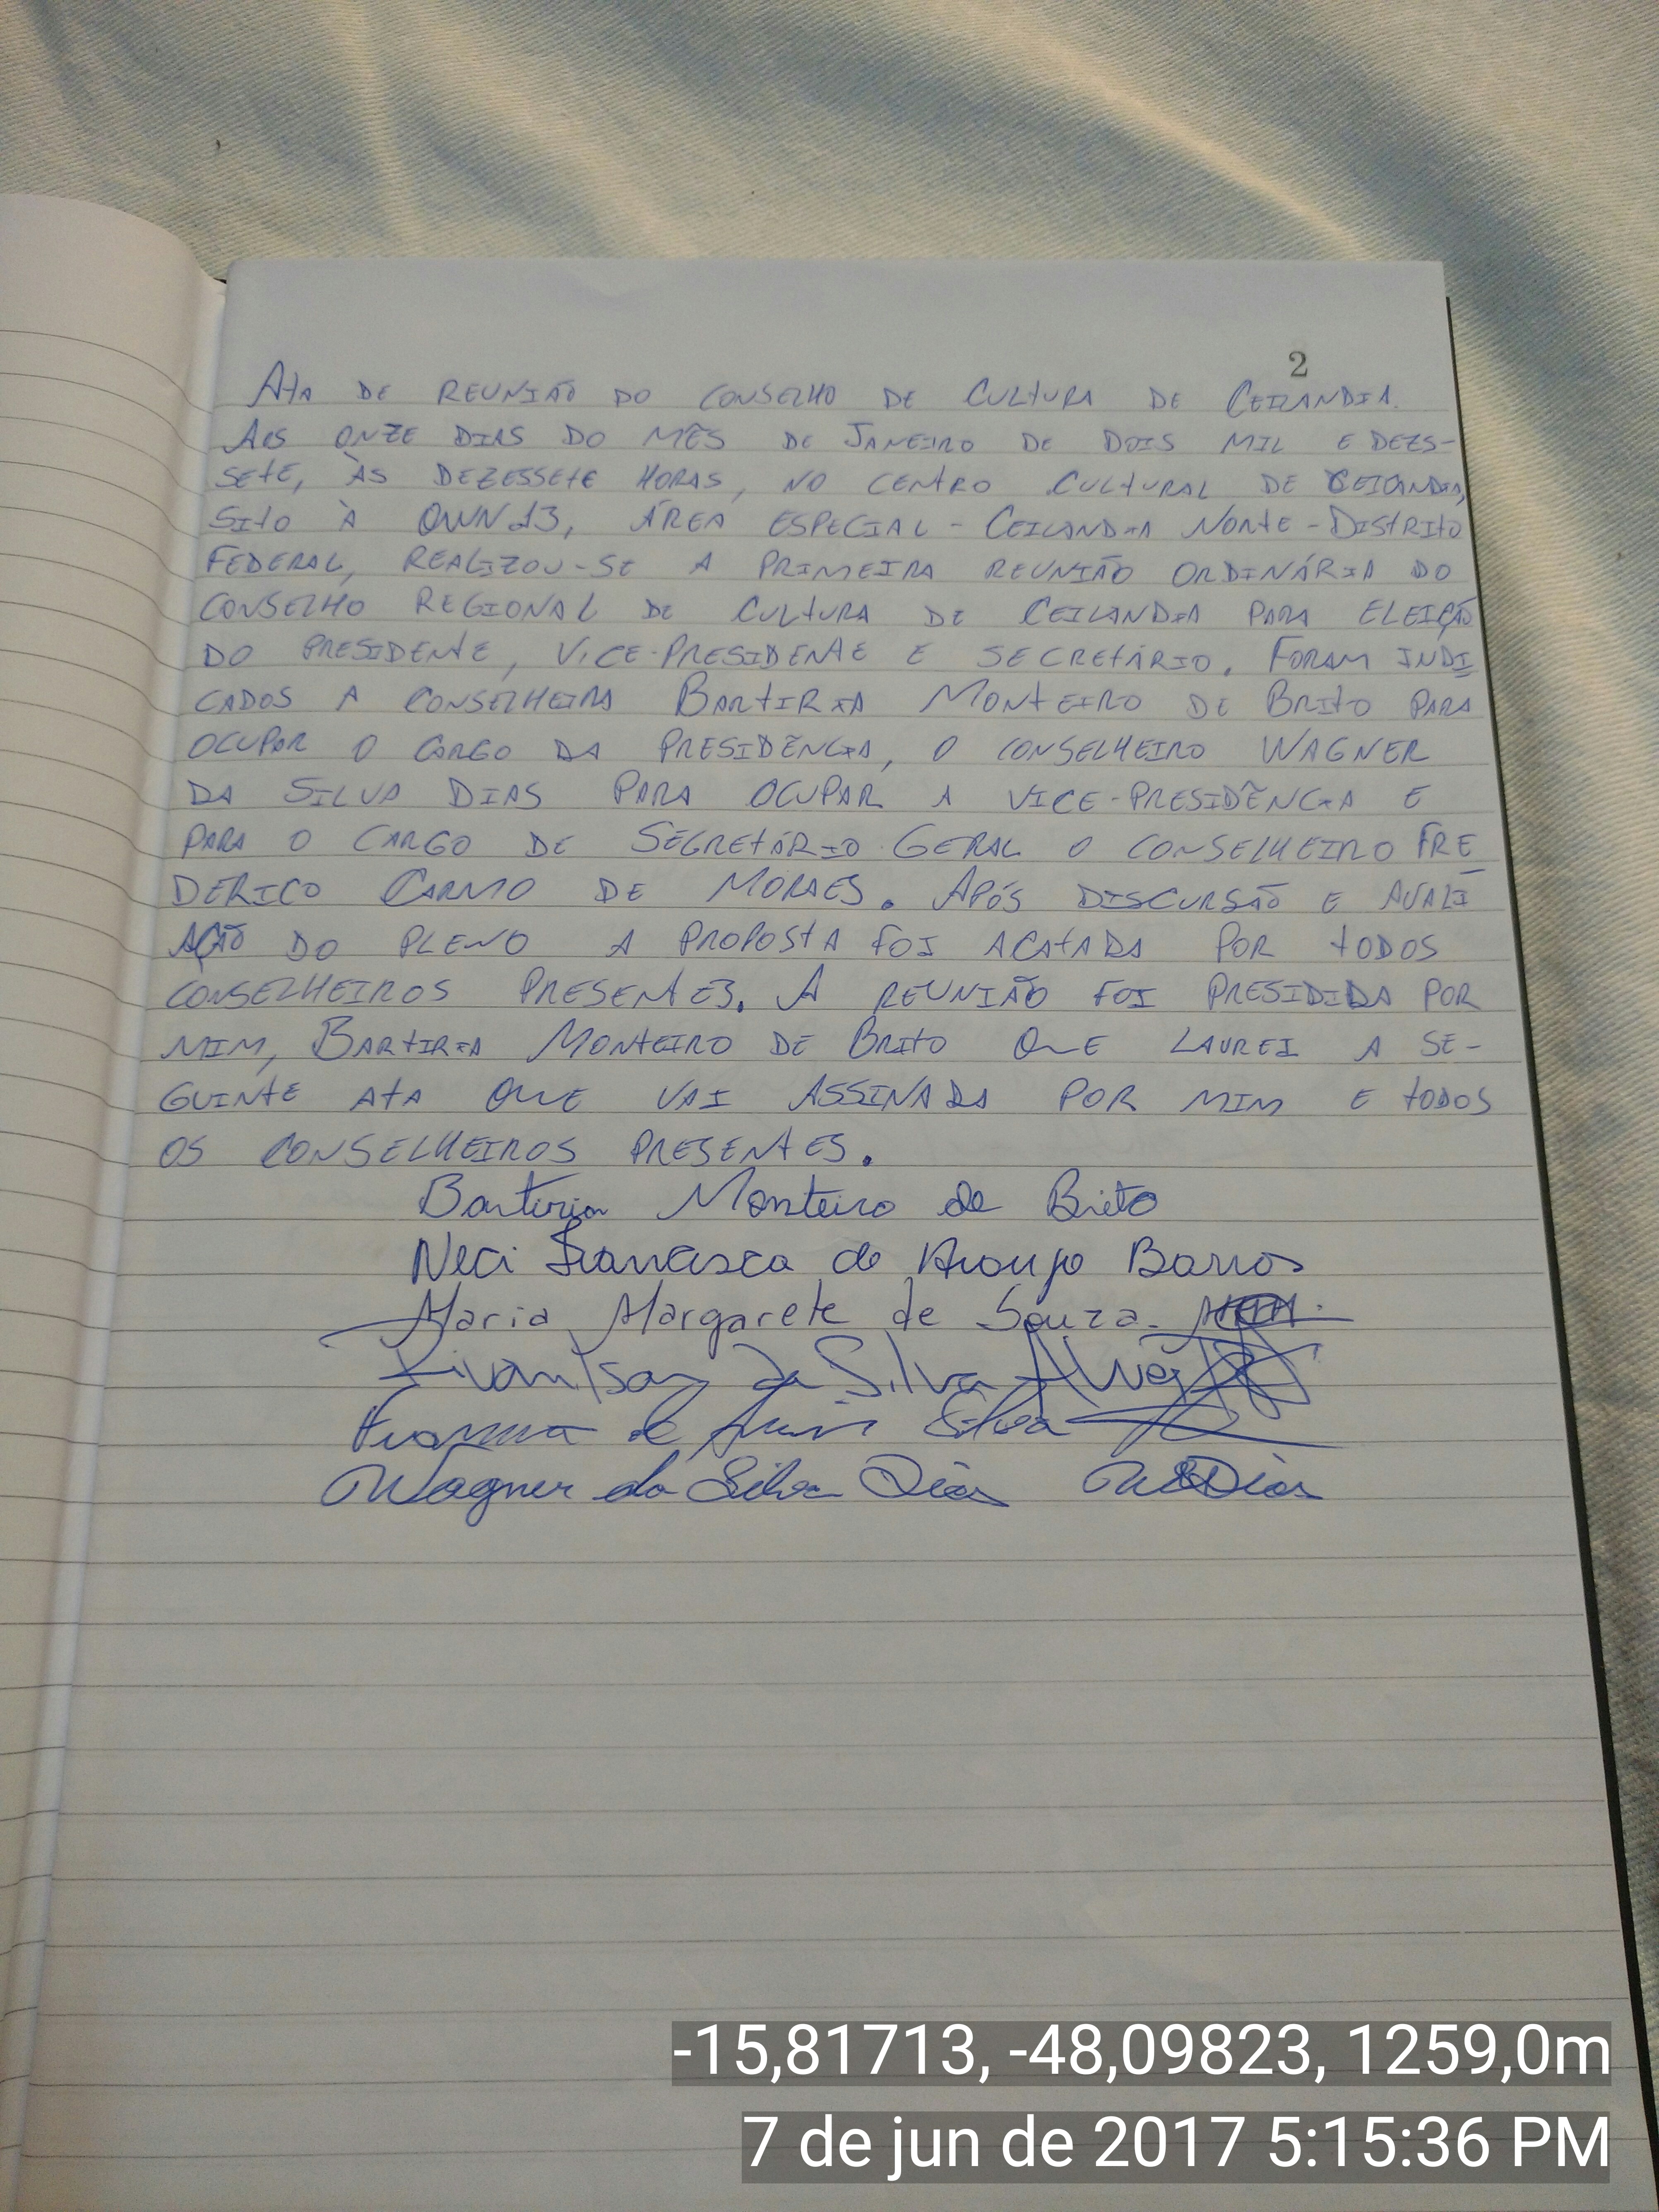 2
Ata de reunião do conselho de Cultura de Ceilandia.
Aos onze dias do mês de Janeiro de dois mil e dezs-
sete, às dezessete horas, no centro cultural de Ceilandia,
sito à QNN 13, área especial - Ceilandia Norte - Distrito
Federal, realizou-se a primeira reunião ordinária do
conselho regional de cultura de Ceilandia para eleição
do presidente, vice-presidente e secretário. Foram indi
cados a conselheira Bartiria Monteiro de Brito para
ocupar o cargo da presidência, o conselheiro Wagner
da Silva Dias para ocupar a vice-presidência e
para o cargo de Secretário Geral o conselheiro Fre
derico Carmo de Moraes. Após discursão e avali
ação do pleno a proposta foi acatada por todos
conselheiros presentes. A reunião foi presidida por
mim, Bartiria Monteiro de Brito que laurei a se-
guinte ata que vai assinada por mim e todos
os conselheiros presentes.
Bartiria Monteiro de Brito
Neci Francisca de Araujo Barros
Maria Margarete de Souza.
da Silva Alves
de Silva
Wagner da Silva Dias WSDias
-15,81713, -48,09823, 1259,0m
7 de jun de 2017 5:15:36 PM